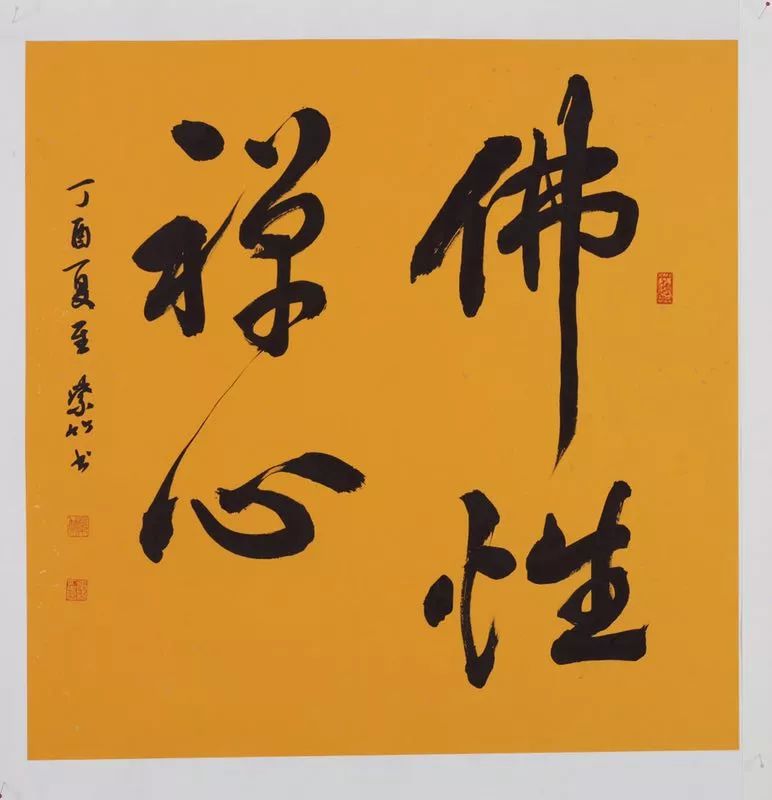 佛性
禅心
丁酉夏至 紫竹书